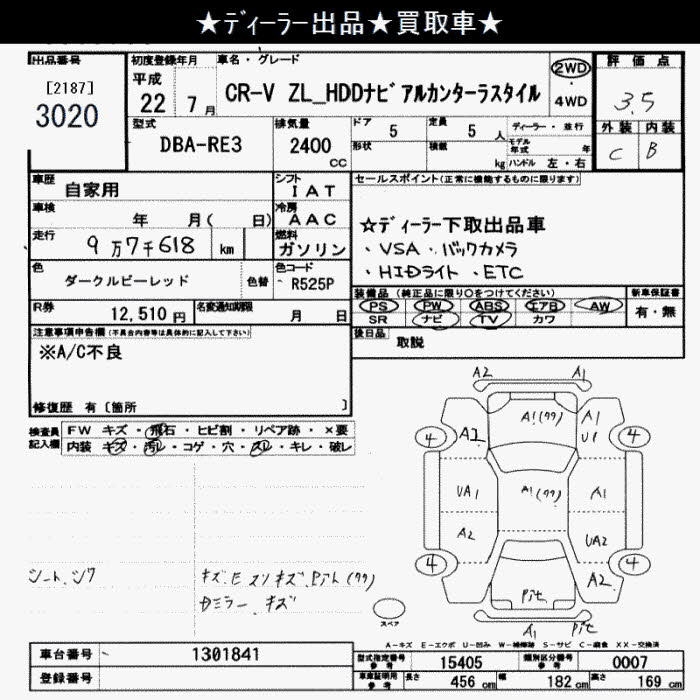 ★ディーラー出品★買取車★
出品番号
[2187]
3020
初度登録年月
平成
22 7月
車名・グレード
CR-V ZL_HDDナビアルカンターラスタイル
2WD
・
4WD
評価点
3.5
外装 内装
C B
型式
DBA-RE3
排気量
2400
CC
ドア 5
定員 5 人
形状
積載
kg
ディーラー・並行
モデル年式 年
ハンドル 左・右
車歴
自家用
シフト
I A T
車検
年 月( 日)
冷房
A A C
走行
9万7千618 km
燃料
ガソリン
色
ダークルビーレッド
色替
色コード
R525P
R券
12,510 円
名変通知期限
月 日
セールスポイント(正常に機能するものに限ります)
☆ディーラー下取出品車
・VSA・バックカメラ
・HIDライト・ETC
装備品 (純正品に限り○をつけてください)
新車保証書
PS PW ABS エアB AW
SR ナビ TV カワ
有・無
後日品
取説
注意事項申告欄(不具合内容等は具体的に記入して下さい)
※A/C不良
修復歴 有〔箇所 〕
検査員
記入欄
FW キズ・飛石・ヒビ割・リペア跡・×要
内装 キズ・汚レ・コゲ・穴・スレ・キレ・破レ
A2 A1
A1(ワワ)
A1
U1
4 A2 4
UA1 A1(ワワ) A1
A2 UA2
4 4
A2
Pit
A1 Pit
スペア
シート、シワ
A-キズ E-エクボ U-凹み W-補修跡 S-サビ C-腐食 XX-交換済
車台番号
1301841
登録番号
型式指定番号
参考
15405
類別区分番号
参考
0007
車庫証明用
参考
長さ 456 cm
幅 182 cm
高さ 169 cm